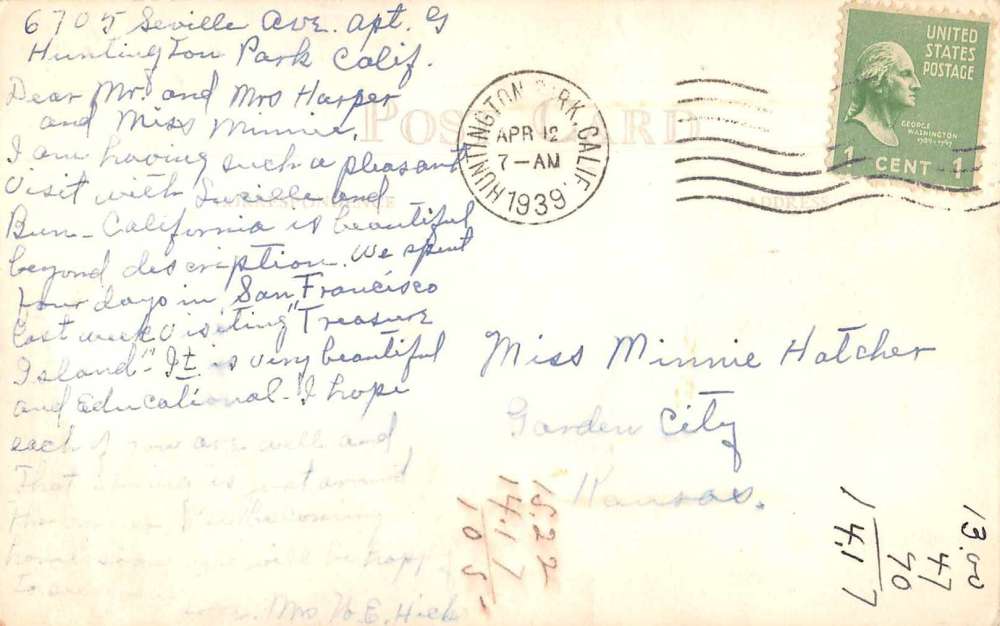 6705 Seville Ave. apt. G
Huntington Park Calif.
Dear Mr. and Mrs Harper
and Miss Minnie,
I am having such a pleasant
visit with Lucille and
Bun – California is beautiful
beyond description. We spent
four days in San Francisco
last week visiting "Treasure
Island" – It is very beautiful
and Educational – I hope
each of you are well and
That is just around
the
home soon will be happy
to
Mrs H. E. Hick
POST CARD
ADDRESS
HUNTINGTON PARK, CALIF.
APR 12
7–AM
1939
UNITED
STATES
POSTAGE
GEORGE
WASHINGTON
1789-1797
1 CENT 1
Miss Minnie Hatcher
Garden City
Kansas.
15.22
14.17
1 0 5
13.00
47
70
14.17